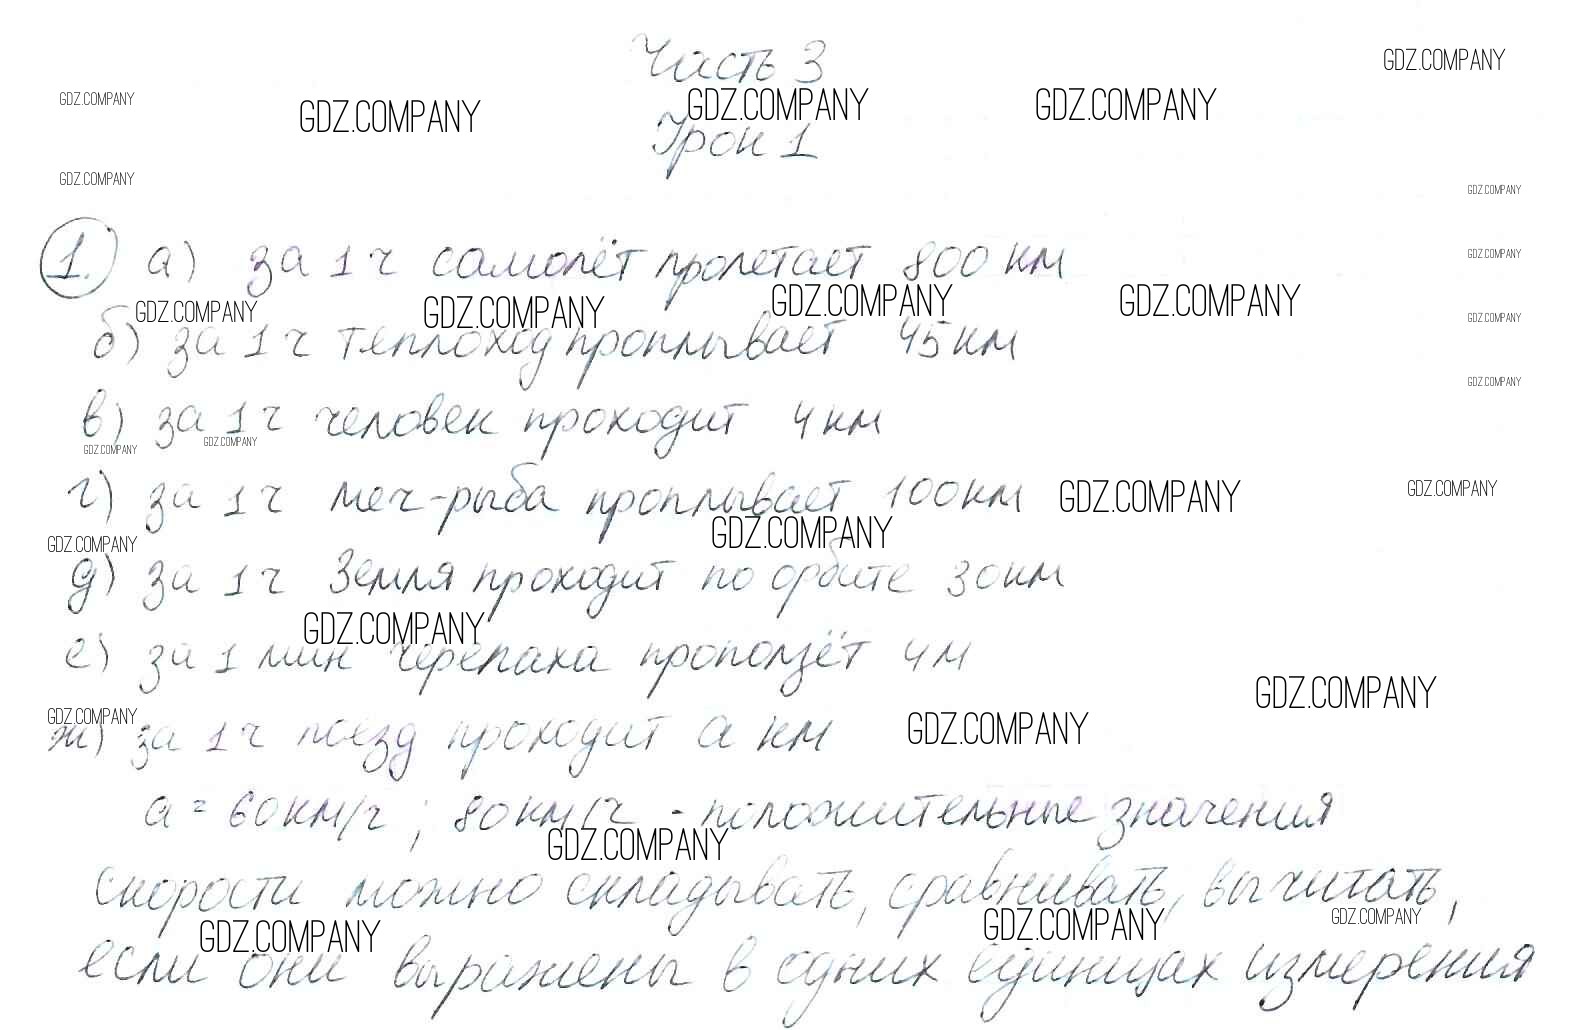 Часть 3
GDZ.COMPANY
GDZ.COMPANY GDZ.COMPANY GDZ.COMPANY GDZ.COMPANY
Урок 1
GDZ.COMPANY
GDZ.COMPANY
1. а) за 1 ч самолёт пролетает 800 км
GDZ.COMPANY
GDZ.COMPANY GDZ.COMPANY GDZ.COMPANY GDZ.COMPANY
GDZ.COMPANY
б) за 1 ч теплоход проплывает 45 км
GDZ.COMPANY
в) за 1 ч человек проходит 4 км
GDZ.COMPANY GDZ.COMPANY
г) за 1 ч меч-рыба проплывает 100 км
GDZ.COMPANY GDZ.COMPANY
GDZ.COMPANY GDZ.COMPANY
д) за 1 ч Земля проходит по орбите 30 км
GDZ.COMPANY
е) за 1 мин черепаха проползёт 4 м
GDZ.COMPANY
GDZ.COMPANY GDZ.COMPANY
ж) за 1 ч поезд проходит а км
а = 60 км/ч ; 80 км/ч - положительные значения
GDZ.COMPANY
скорости можно складывать, сравнивать, вычитать,
GDZ.COMPANY GDZ.COMPANY GDZ.COMPANY
если они выражены в одних единицах измерения